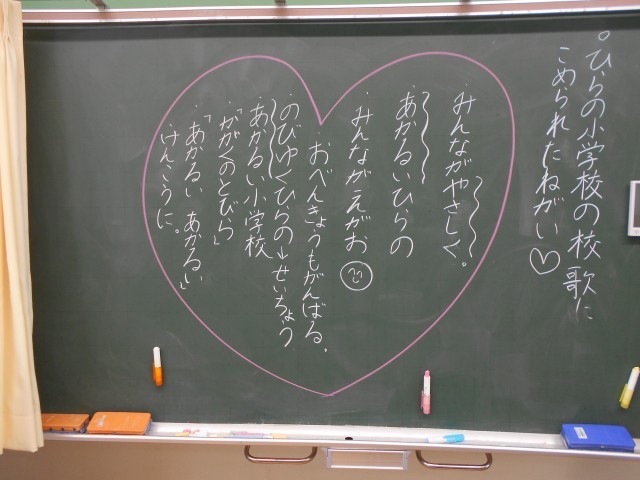 ○ひらの小学校の校歌に
こめられたねがい♡
・みんながやさしく。
・あかるいひらの
・みんながえがお
おべんきょうもがんばる。
・のびゆくひらの→せいちょう
・あかるい小学校
・「かがくのとびら」
・「あかるい あかるい」
・けんこうに。